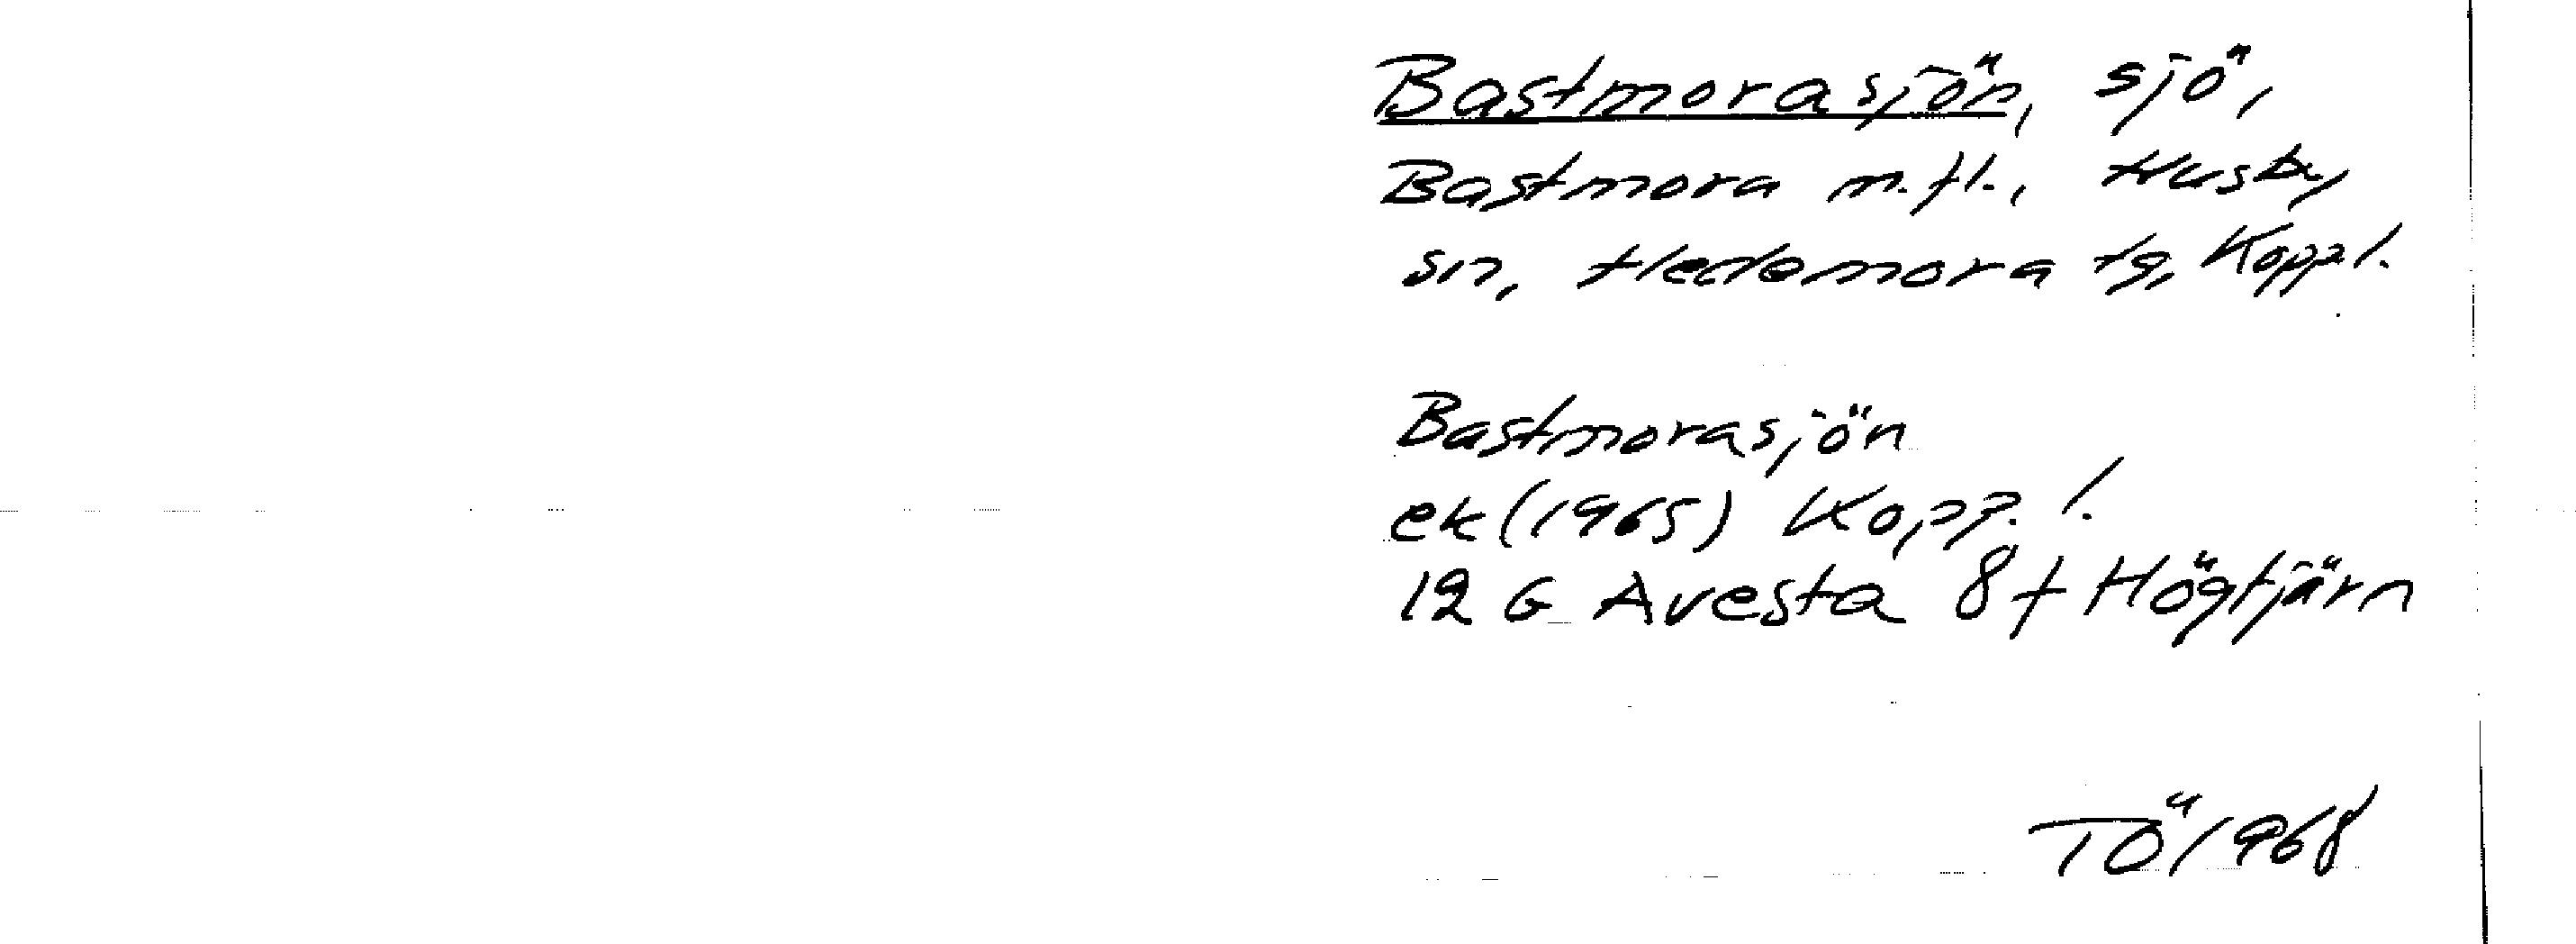 Bastmorasjön, sjö,
Bastmora m.fl., Husby
sn, Hedemora tg, Kopp.l.
Bastmorasjön
ek (1965) Kopp. l.
12 G Avesta 8f Högtjärn
TÖ 1968